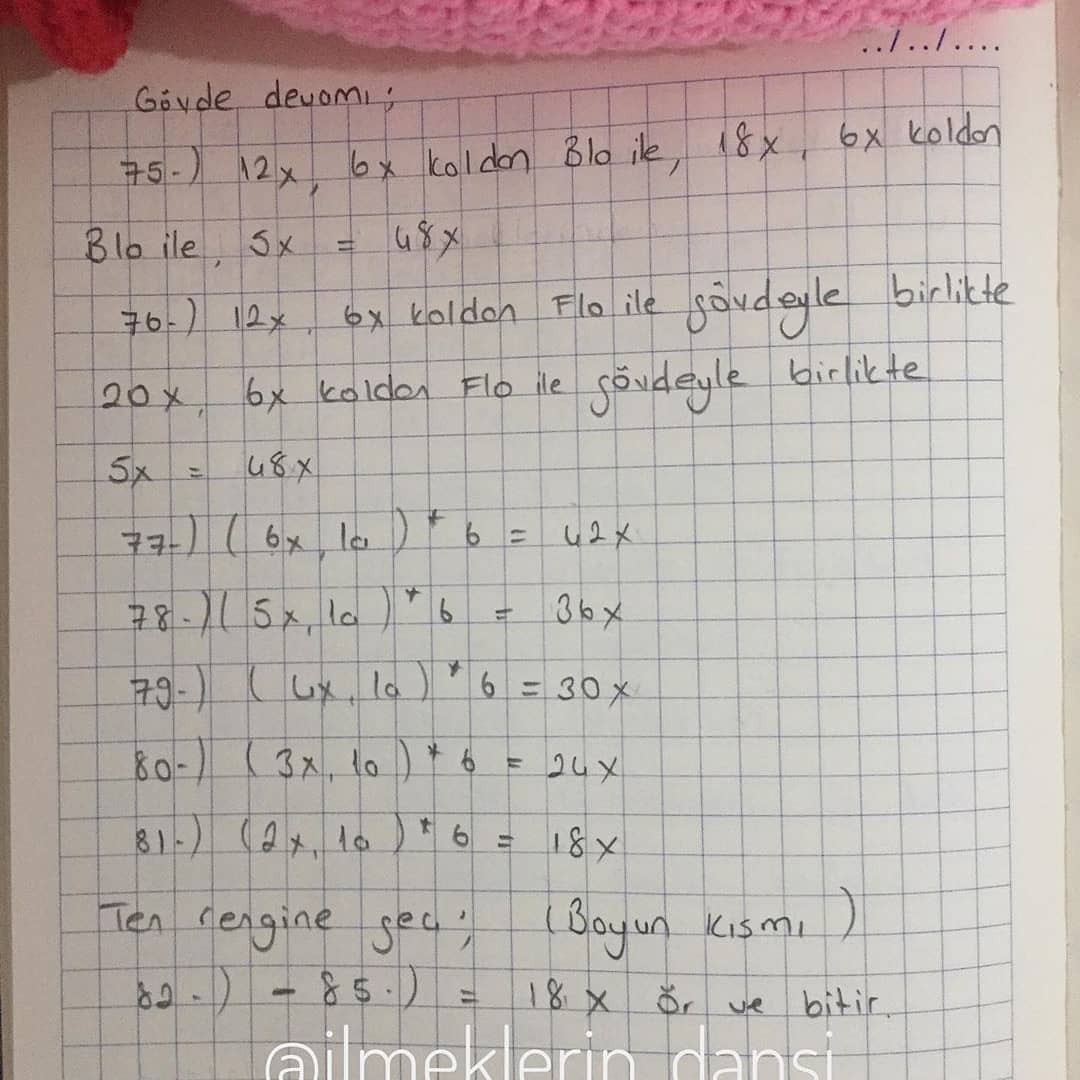 ../../....
Gövde devamı;
75-) 12x, 6x koldan Blo ile, 18x, 6x koldan
Blo ile, 5x = 48x
76-) 12x, 6x koldan Flo ile gövdeyle birlikte
20x, 6x koldan Flo ile gövdeyle birlikte
5x = 48x
77-) (6x, 1a)* 6 = 42x
78-) (5x, 1a)* 6 = 36x
79-) (4x, 1a)* 6 = 30x
80-) (3x, 1a)* 6 = 24x
81-) (2x, 1a)* 6 = 18x
Ten rengine geç; (Boyun kısmı)
82-) - 85-) = 18x ör ve bitir.
@ilmeklerin_dansi